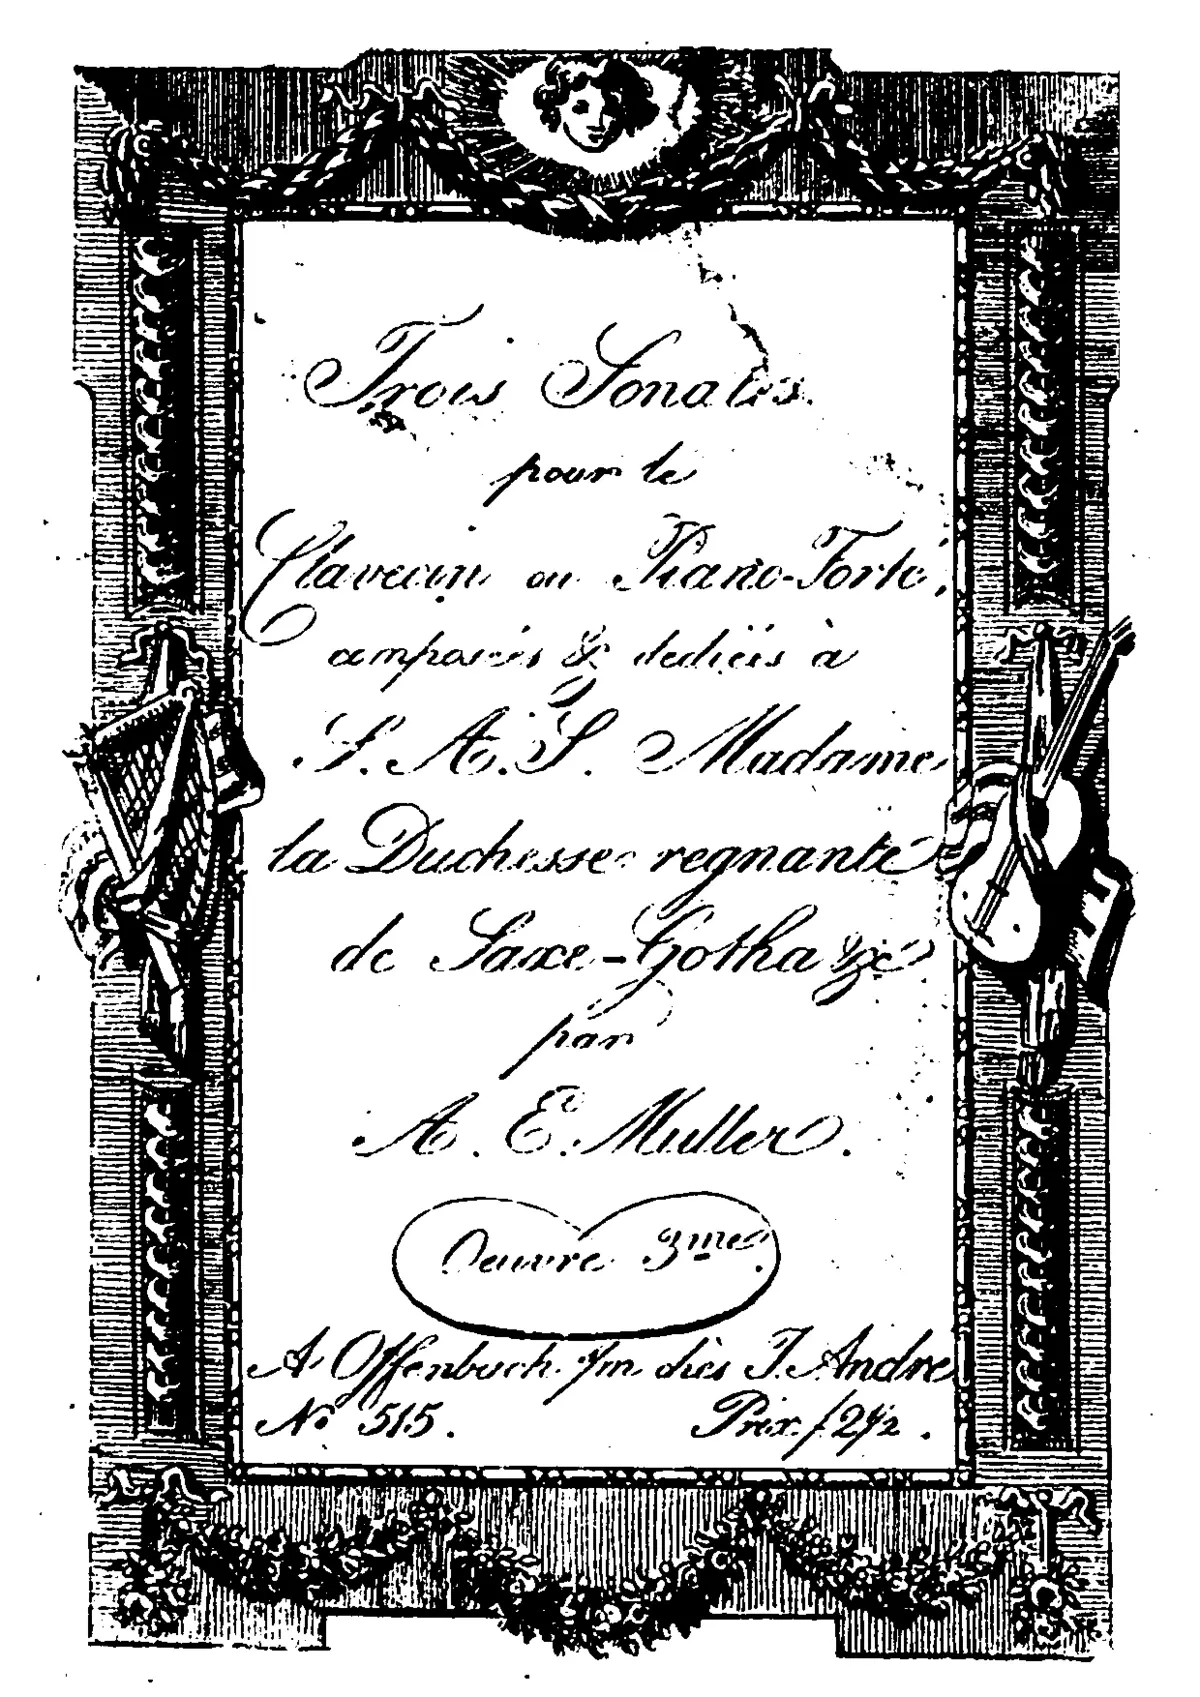 Trois Sonates.
pour le
Clavecin ou Piano-Forté,
composées & dediées à
S. A. S. Madame
la Duchesse regnante
de Saxe-Gotha &c
par
A. E. Muller.
Oeuvre 3me.
A Offenbach s/m chès J. André
No 515. Prix f 2 1/2.